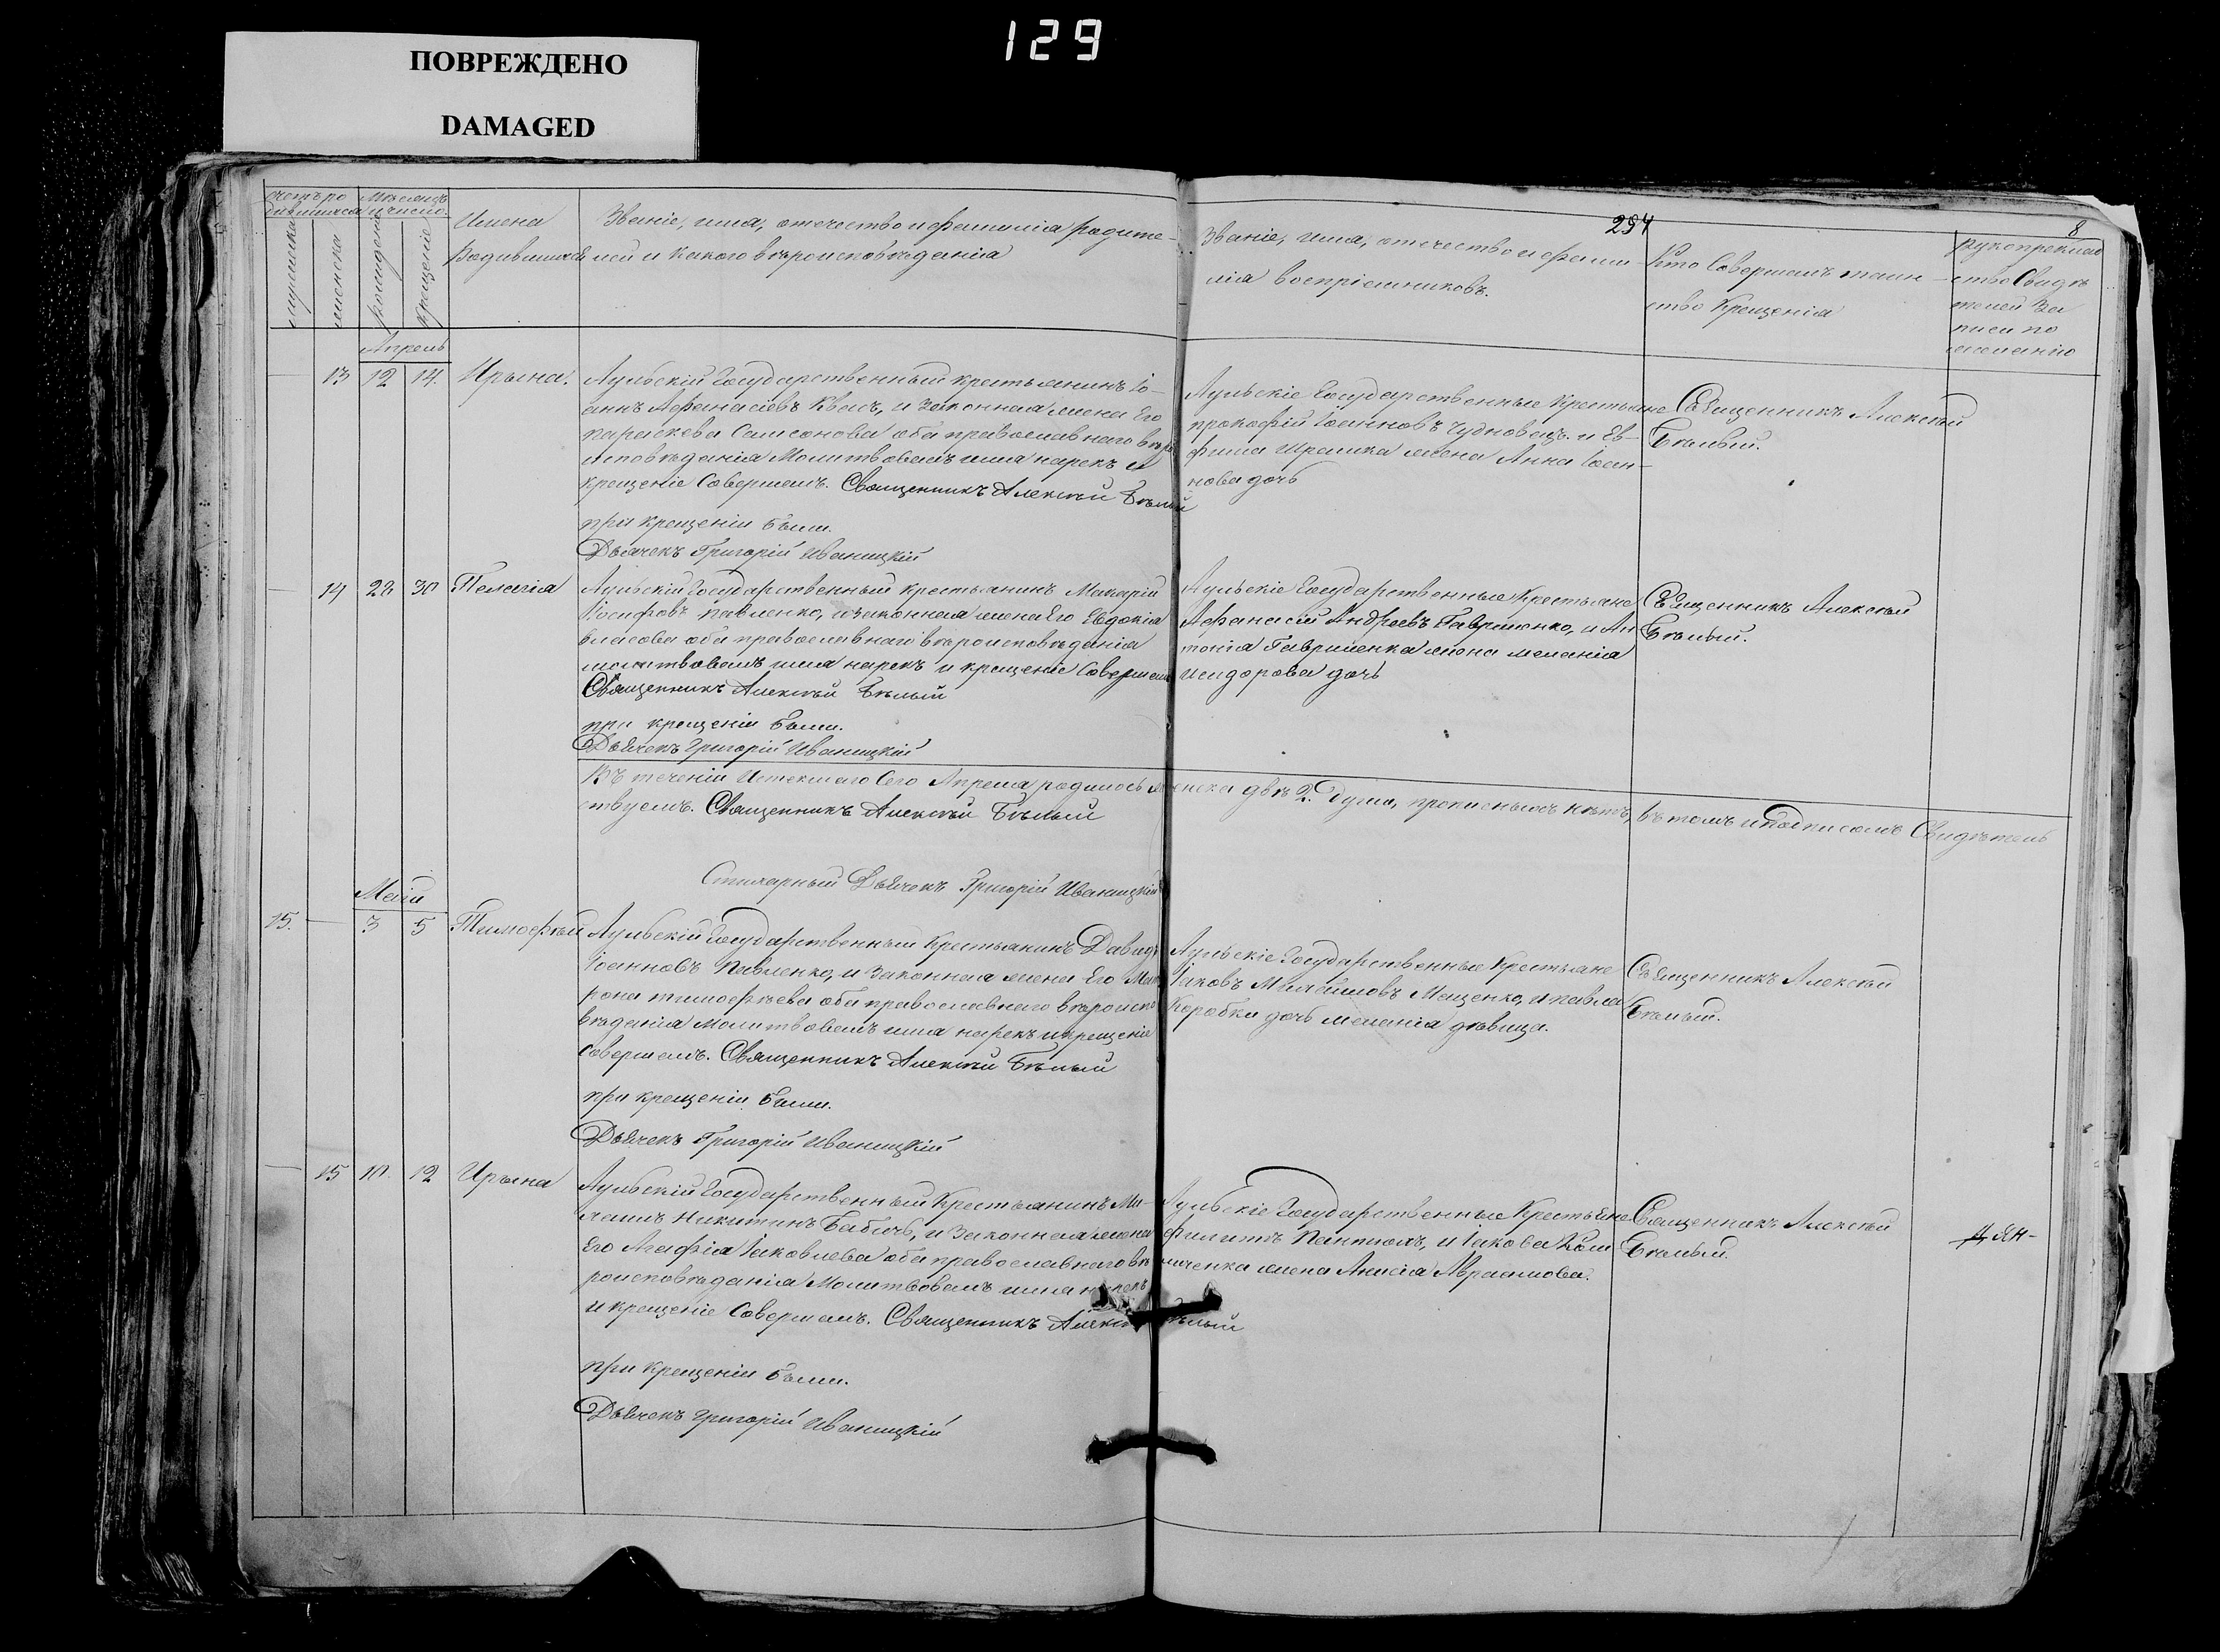 129
ПОВРЕЖДЕНО
DAMAGED
294
8
счетъ ро
дившихся
мѣсяцъ
и число
мужеска
женска
рожденія
крещенія
Имена
Родившихся
Званіе, имя, отечество и фамилія родите-
лей и какого вѣроисповѣданія
Званіе, имя, отечество и фами-
лія воспріемниковъ.
Кто Совершалъ таин-
ство Крещенія
рукоприклад
ство Свидѣ
телей За
писи по
желанію
Апрель
13 12 14. Ирына.
Аульскій Государственный крестьянинъ Іо-
аннъ Афанасіевъ Квашъ, и законная жена Его
параскева Самсонова оба православнаго вѣро
исповѣданія Молитвовалъ имя нарекъ и
крещеніе Совершалъ. Священникъ Алексѣй Бѣлый
при крещеніи были.
Дьячекъ Григорій Иваницкій
Аульскіе Государственные Крестьяне
прокофій Іоанновъ Чудновецъ и Ев-
фима жена Анна Іоан-
нова дочь
Священникъ Алексѣй
Бѣлый.
14 28 30 Пелагія
Аульскій Государственный крестьянинъ Макарій
Іосифовъ Павленко, и законная жена Его Евдокія
Власова оба православнаго вѣроисповѣданія
молитвовалъ имя нарекъ и крещеніе Совершалъ
Священникъ Алексѣй Бѣлый
при крещеніи были.
Дьячекъ Григорій Иваницкій
Аульскіе Государственные Крестьяне
Афанасій Андреевъ Гавриленко, и Ан
тонія Гавриленка жена меланія
Исидорова дочь
Священникъ Алексѣй
Бѣлый.
Въ теченіи Истекшаго Сего Апреля родилось женска двѣ 2. Души, прописныхъ нѣтъ, въ томъ и подписомъ Свидѣтель
ствуемъ. Священникъ Алексѣй Бѣлый
Дьячекъ Григорій Иваницкій
Маій
15. 3 5 Тимофѣй
Аульскій Государственный Крестьянинъ Давидъ
Іоанновъ Павленко, и Законная жена Его Мат
рона тимофѣева оба православнаго вѣроиспо
вѣданія молитвовалъ имя нарекъ и крещеніе
Совершалъ. Священникъ Алексѣй Бѣлый
при крещеніи были.
Дьячекъ Григорій Иваницкій
Аульскіе Государственные Крестьяне
Іаковъ Михайловъ Мащенко, и павла
Коробки дочь меланія дѣвица.
Священникъ Алексѣй
Бѣлый.
15 10. 12 Ирына
Аульскій Государственный Крестьянинъ Ми-
хаилъ Никитинъ Бабичъ, и Законная жена
Его Агафія Іаковлева оба православнаго вѣ
роисповѣданія Молитвовалъ имя нарекъ
и крещеніе Совершалъ. Священникъ Алексѣй Бѣлый
при крещеніи были.
Дьячекъ Григорій Иваницкій
Аульскіе Государственные Крестьяне
филиппъ и Іакова
жена Анисія Авраамова.
Священникъ Алексѣй
Бѣлый.